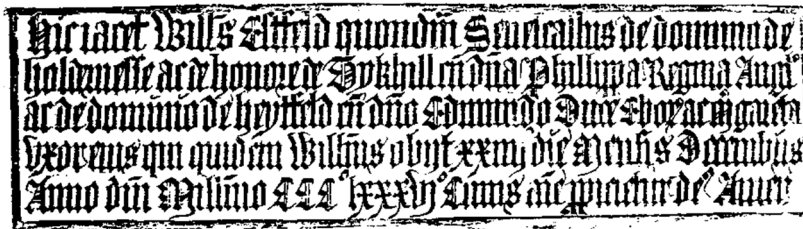 Hic iacet Willms Elffeld quondm Senescallus de dominio de
holdernesse ac de honore de Tykhill cu dna Philippa Regina Angl
ac de dominio de heytfeld cu dno Edmundo Duce Eboraci margareta
Uxor eius qui quidem Willmus obijt xxiiij die Mensis Decembris
Anno dni Millimo CCC lxxxvj Cuius aie ppicietur de Amen